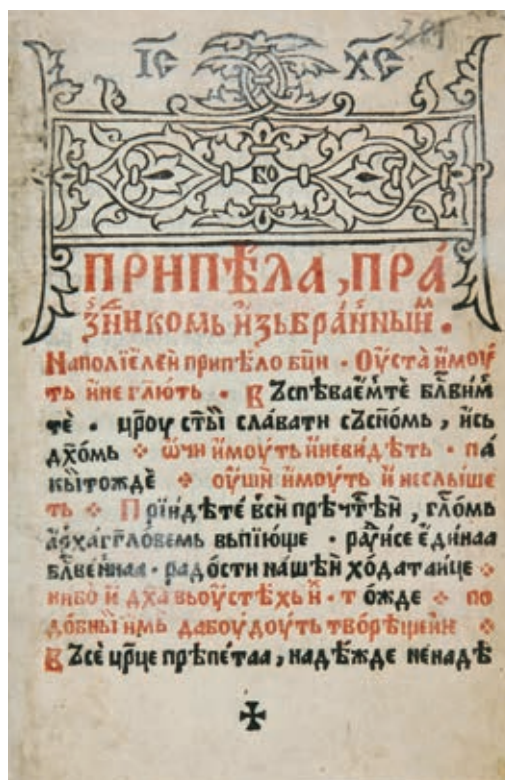 І҃С Х҃С
281
БО
ПРИПѢЛА, ПРА́
ЗⷣНИКОМЬ И҆ЗЬБРА́ННЫИⷨ.
Наполїелей припѣло бци · Оу҆ста̀ и҆моу́
ть и҆ не гл҃ють · В ъспѣваемъ те бл҃вим
те · цр҃оу ст҃ы́и слава ти съ сп҃омь, и҆ сь
дх҃омь · ѡ҆чи и҆моуть и҆ невидѣть · па
кы тожде · оу҆ши и҆моуть и҆ неслыше
ть · Прїидѣте вси прѣчт҃ѣи, гл҃омь
а҆рха́гг҃ловемь вьпїюще · рау́исе е҆динаа
бл҃веннаа · радости нашеи хо́датаице
ниб̀о и҆ дх҃а вьоу҆стѣхь и҆ · т ожде · по
до́бныи и҆мь да боу́доуть тво́рещеи ие
В ъсе цр҃це прѣпѣтаа, надѣжде ненадѣ